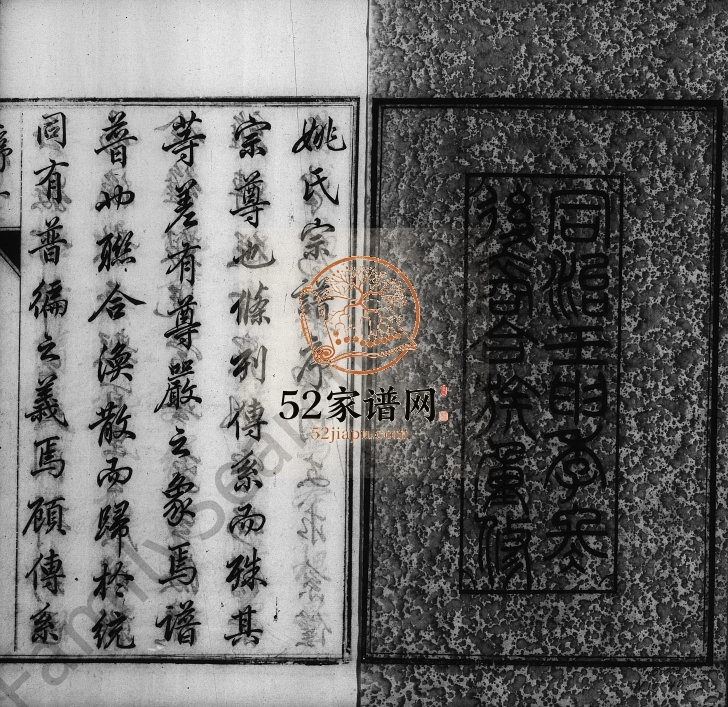 同治壬申季冬
後裔合族重修
姚氏宗譜序
宗尊也條列傳系而殊其
等差有尊嚴之象焉譜
普也聯合渙散而歸於統
同有普徧之義焉顧傳系
序一
52家谱网
52jiapu.com
FamilySearch